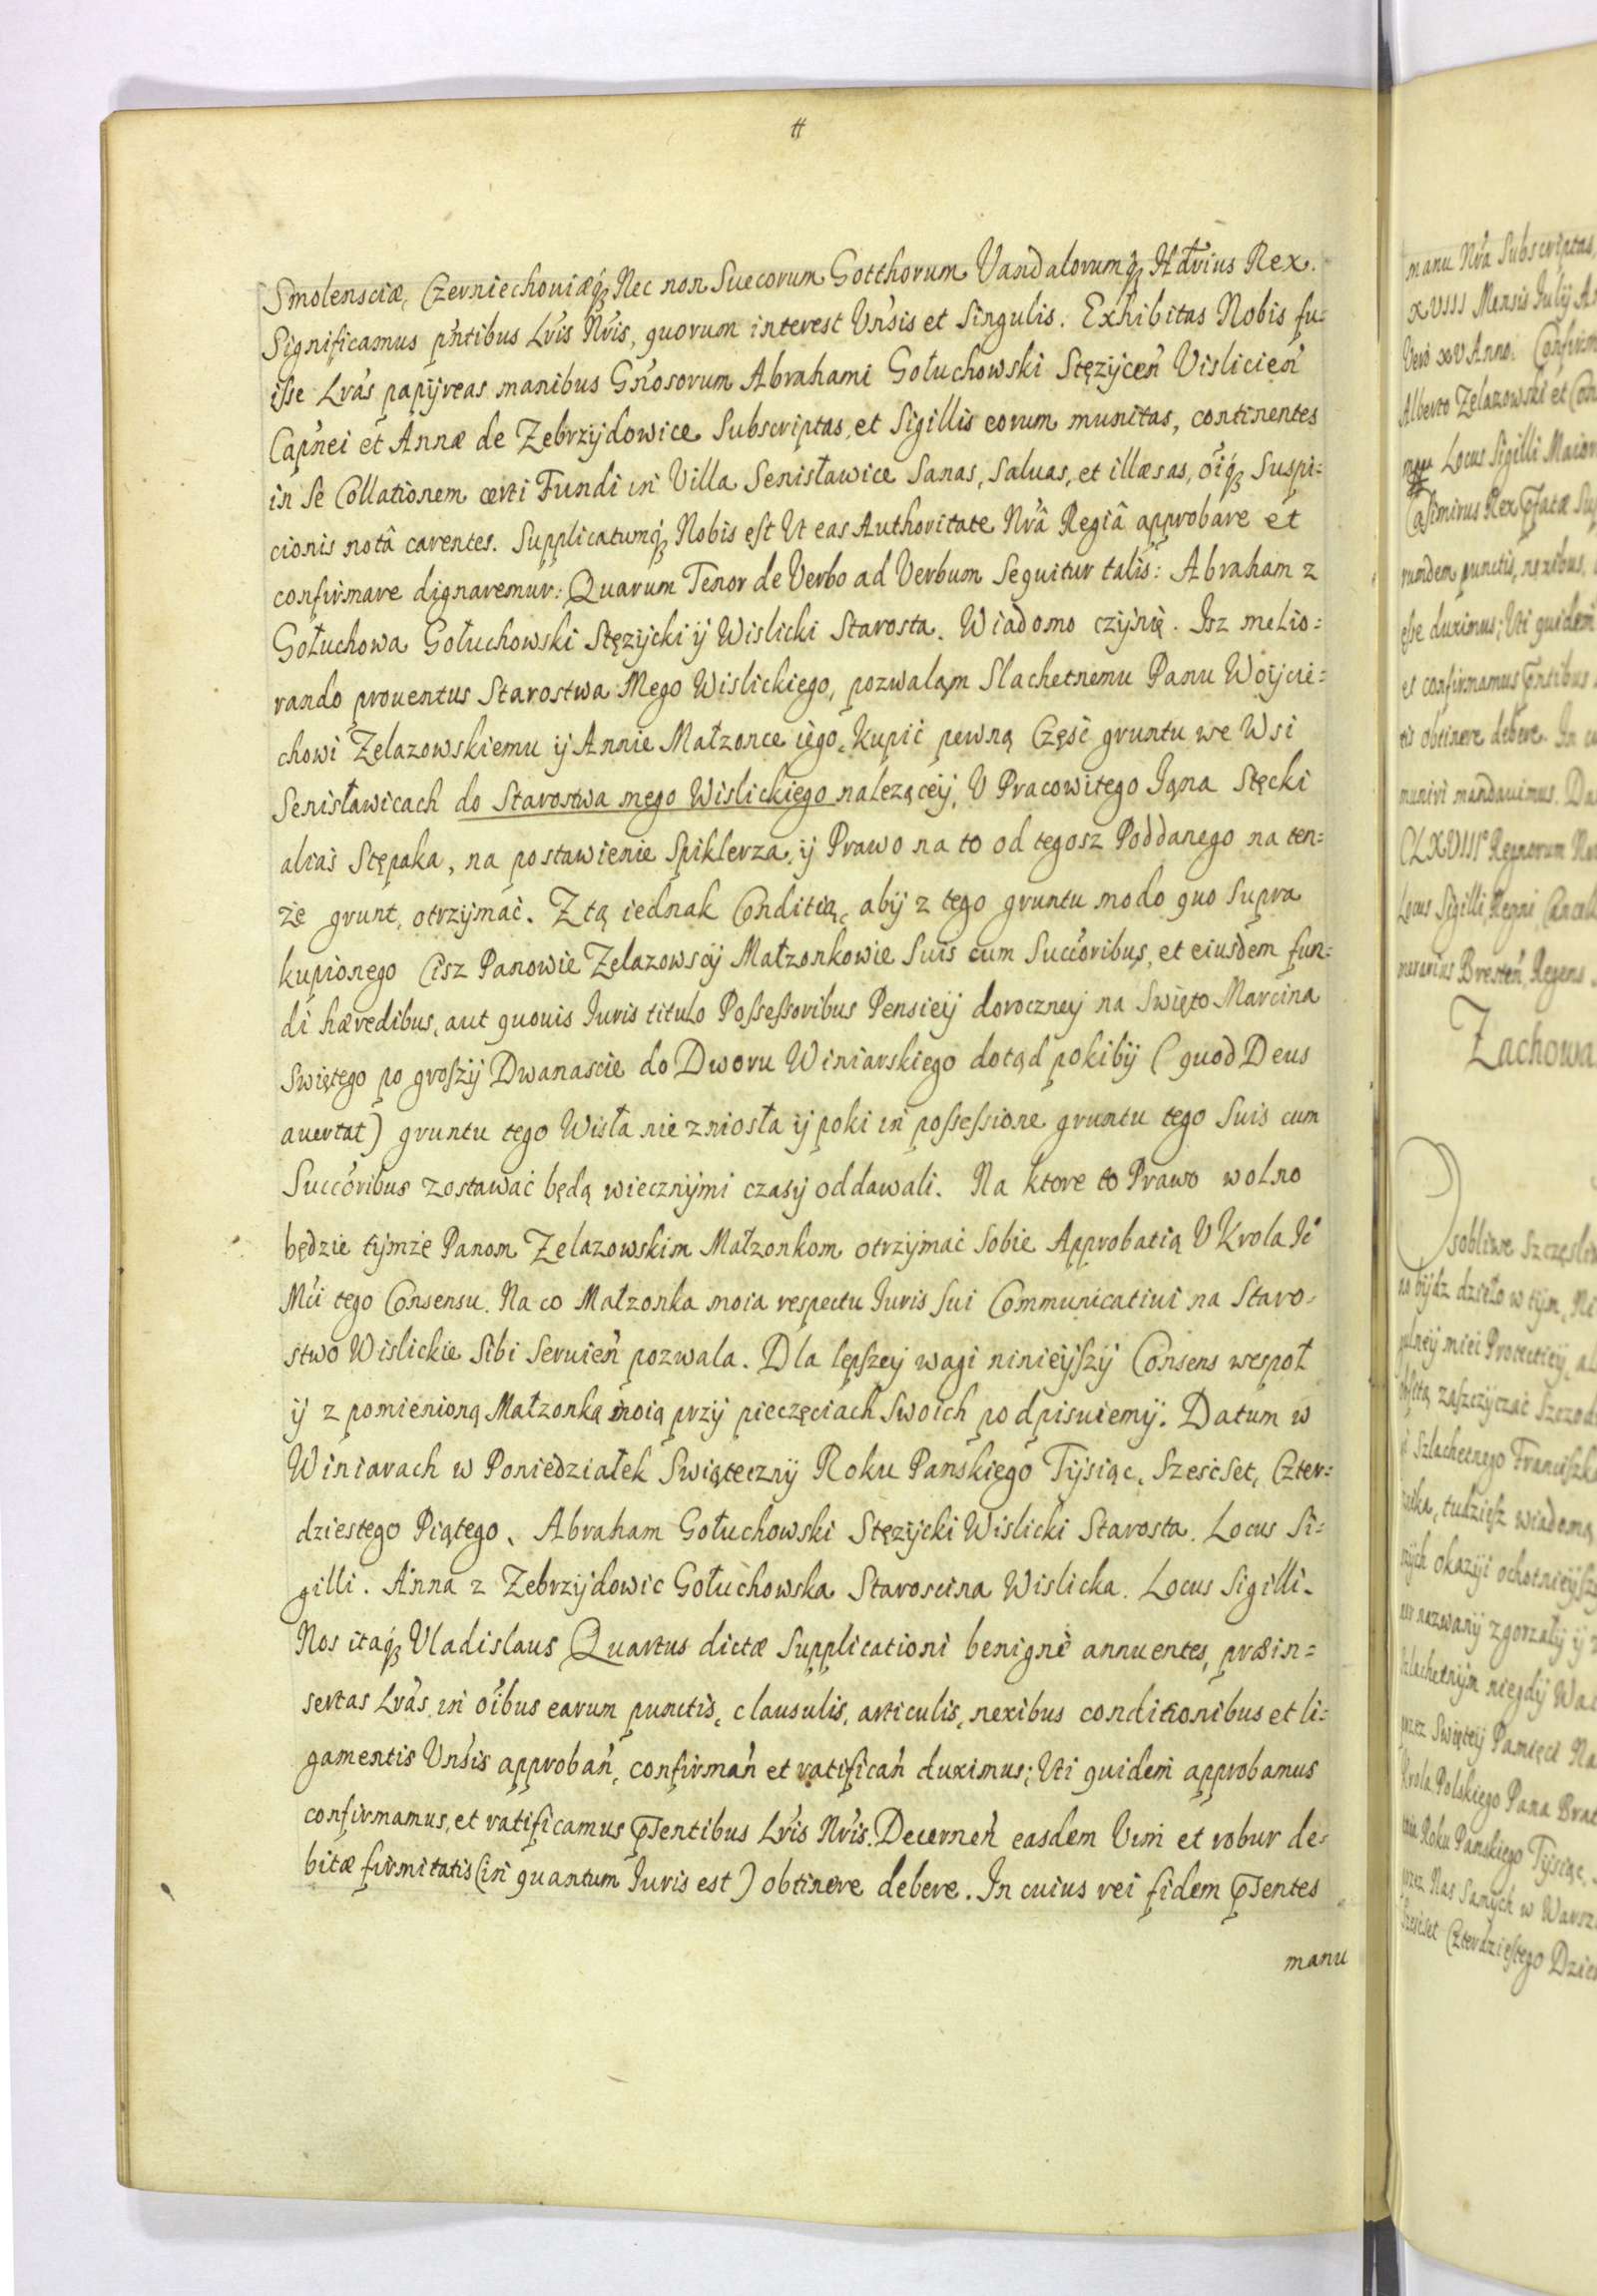 #
Smolensciæ, Czerniechoviæq́ꝫ Nec non Suecorum Gotthorum Vandalorumq́ꝫ Hærius Rex.
Significamus pńtibus Lrís Nrís, quorum interest Vńsis et Singulis. Exhibitas Nobis fu=
isse Lrás papÿreas manibus Gńosorum Abrahami Gołuchowski Stęzÿceń Vislicień
Capńei et Annæ de Zebrzÿdowice Subscriptas, et Sigillis eorum munitas, continentes
in se Collationem certi Fundi in Villa Senisławice Sanas, Saluas, et illæsas, oíq́ꝫ Suspi=
cionis notâ carentes. Supplicatumq́ꝫ Nobis est Vt eas Authoritate Nrâ Regiâ approbare et
confirmare dignaremur: Quarum Tenor de Verbo ad Verbum Sequitur talis: Abraham z
Gołuchowa Gołuchowski Stęzÿcki ÿ Wislicki Starosta. Wiadomo czÿnię. Isz melio=
rando prouentus Starostwa Mego Wislickiego, pozwaląm Slachetnemu Panu Woÿcie=
chowi Zelazowskiemu ÿ Annie Małzonce iego, kupić pewną Część gruntu we Wsi
Senisławicach do Starostwa mego Wislickiego nalezącéÿ, V Pracowitego Iąna Stęcki
alias Stępaka, na postawienie Spiklerza, ÿ Prawo na to od tegosz Poddanego na ten=
że grunt, otrzÿmać. Z tą iednak Conditią, abÿ z tego gruntu modo quo supra
kupionego Cisz Panowie Zelazowscÿ Małzonkowie Suis cum Succóribus, et eiusdem fun=
di hæredibus, aut quouis Iuris titulo Possessoribus Pensieÿ doroczneÿ na Swięto Marcina
Swiętego po groszÿ Dwanascie do Dworu Winiarskiego dotąd pokibÿ (quod Deus
auertat) gruntu tego Wisła nie zniosła ÿ poki in possessione gruntu tego Suis cum
Succóribus zostawać będą wiecznÿmi czasÿ oddawali. Na ktore to Prawo wolno
będzie tÿmże Panom Zelazowskim Małzonkom otrzÿmać sobie Approbatią V Krola Ić
Mći tego Consensu. Na co Małzonka moia respectu Iuris sui Communicatiui na Staro=
stwo Wislickie Sibi Seruień pozwala. Dla lepszeÿ wagi ninieÿszÿ Consens wespoł
ÿ z pomienioną Małzonką moią przÿ pieczęciach Swoich podpisuiemÿ. Datum w
Winiarach w Poniedziałek Swiątecznÿ Roku Panskiego Tÿsiąc, Szesćset, Czter=
dziestego Piątego. Abraham Gołuchowski Stęzÿcki Wislicki Starosta. Locus Si=
gilli. Anna z Zebrzÿdowic Gołuchowska Staroscina Wislicka. Locus Sigilli.
Nos itaq́ꝫ Vladislaus Quartus dictæ Supplicationi benignè annuentes, præin=
sertas Lrás in oíbus earum punctis, clausulis, articulis, nexibus conditionibus et li=
gamentis Vnśis approbań, confirmań et ratificań duximus; Uti quidem approbamus
confirmamus, et ratificamus p̄sentibus Lrís Nrís. Decerneń easdem Vim et robur de=
bitæ firmitatis (in quantum Iuris est) obtinere debere. In cuius rei fidem p̄sentes
manu
manu Nrá Subscriptas
XVIII Mensis Iulÿ
Vero XV Anno.
Alberto Zelazowski et
Locus Sigilli Maior
Casimirus Rex
rundem punctis, nexibus,
esse duximus; Uti quidem
et confirmamus
tis obtinere debere. In
muniri mandauimus.
CLXVIII Regnorum
Locus Sigilli Regni
Bresteń, Regens
Zachowa
Osobliwe
bÿdz dzieło w tÿm,
zaszczÿcać
Szlachetnego
tudziesz wiadomą
okazÿi
nazwanÿ zgorzałÿ ÿ
Szlachetnÿm niegdÿ
przez Swięteÿ Pamięci
Krola Polskiego Pana
Roku Panskiego Tÿsiąc
przez Nas Samÿch w
Szescset Czterdziestego